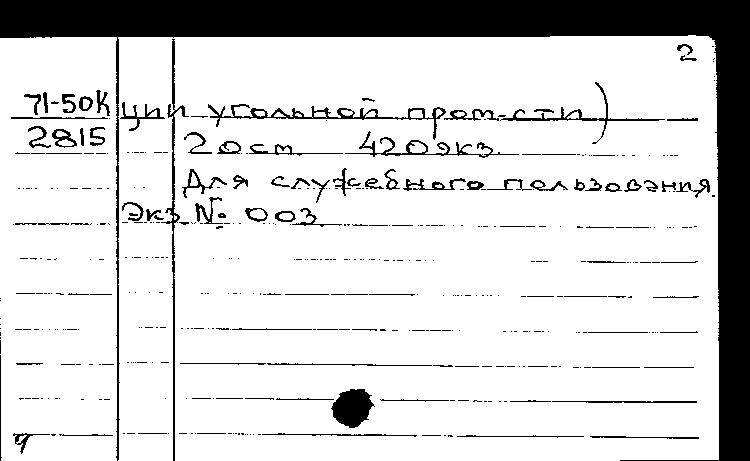 2
71-50К ции угольной пром-сти)
2815 20 см. 420экз.
Для служебного пользования.
Экз. № 003
ч